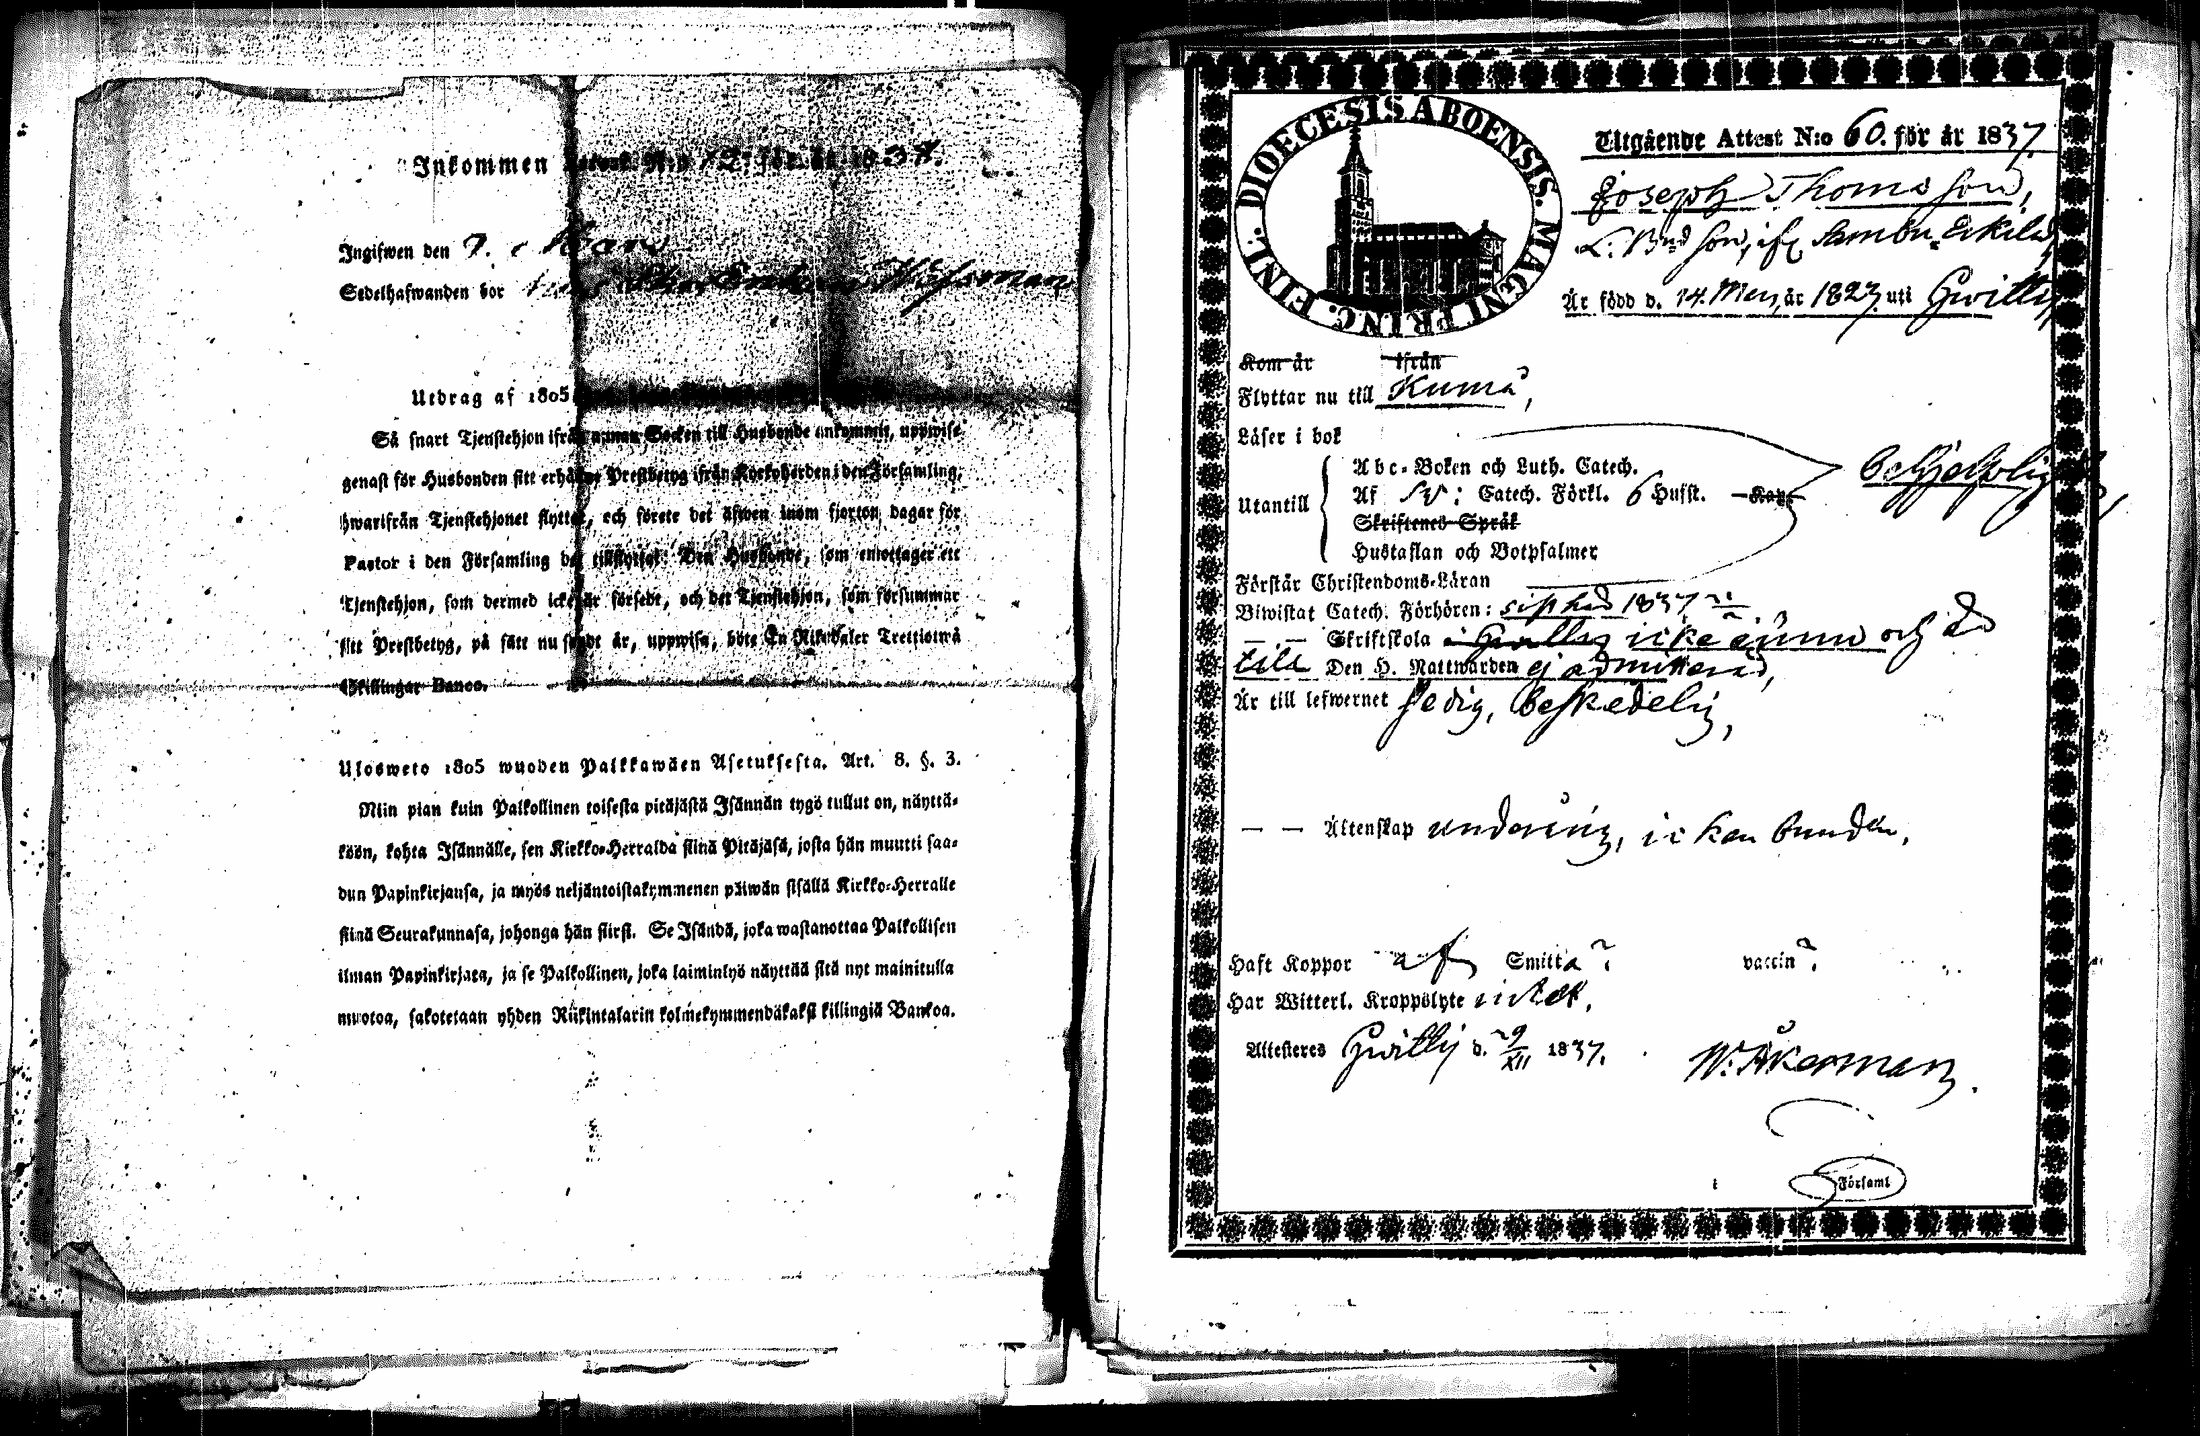 Inkommen Attest N:o 12. för år 1838.
Ingifwen den 7. Mars
Sedelhafwanden bor hos Wissman
Utdrag af 1805
Så snart Tjenstehjon ifrån annan Socken till Husbonde ankommit, uppwise
genast för Husbonden sitt erhållne Prestbetyg ifrån Kyrkoherden i den Församling,
hwarifrån Tjenstehjonet flyttat, och förete det äfwen inom fjorton dagar för
Pastor i den Församling det tillflyttat. Den Husbonde, som emottager ett
Tjenstehjon, som dermed icke är försedt, och det Tjenstehjon, som försummar
sitt Prestbetyg, på sätt nu sagdt är, uppwisa, böte En Riksdaler Trettiotwå
Skillingar Banco.
Ulosweto 1805 wuoden Palkkawäen Asetuksesta. Art. 8. §. 3.
Niin pian kuin Palkollinen toisesta pitäjästä Isännän tygö tullut on, näyttä-
köön, kohta Isännälle, sen Kirkko-Herralda siinä Pitäjäsä, josta hän muutti saa-
dun Papinkirjansa, ja myös neljäntoistakymmenen päiwän sisällä Kirkko-Herralle
siinä Seurakunnasa, johonga hän siirsi. Se Isändä, joka wastanottaa Palkollisen
ilman Papinkirjata, ja se Palkollinen, joka laiminlyö näyttää sitä nyt mainitulla
muotoa, sakotetaan yhden Riikintalarin kolmekymmendäkaksi killingiä Bankoa.
DIOECESIS ABOENSIS. MAGNI PRINC. FINL.
Utgående Attest N:o 60. för år 1837.
Joseph Thomasson,
L. Bnd son, ifr Sambu Eskila,
Är född d. 14. Maij, år 1823 uti Hwittis
Kom år ifrån
Flyttar nu till Kumå,
Läser i bok
Abc-Boken och Luth. Catech.
Utantill Af Sv: Catech. Förkl. 6 Hufst. Kap.
behjelpligt
Skriftenes Språk
Hustaflan och Botpsalmer
Förstår Christendoms-Läran
Biwistat Catech. Förhören: sist hos 1837
— — Skriftskola i Hwittis icke ännu och då
till Den H. Nattwarden ej admitterad,
Är till lefwernet sedig, beskedelig,
— — Äktenskap underårig, icken bunden,
Haft Koppor af Smitta? vaccin?
Har Witterl. Kroppslyte intet,
Attesteres Hwittis d. 9/XII 1837.
W. Åkerman
i Församl